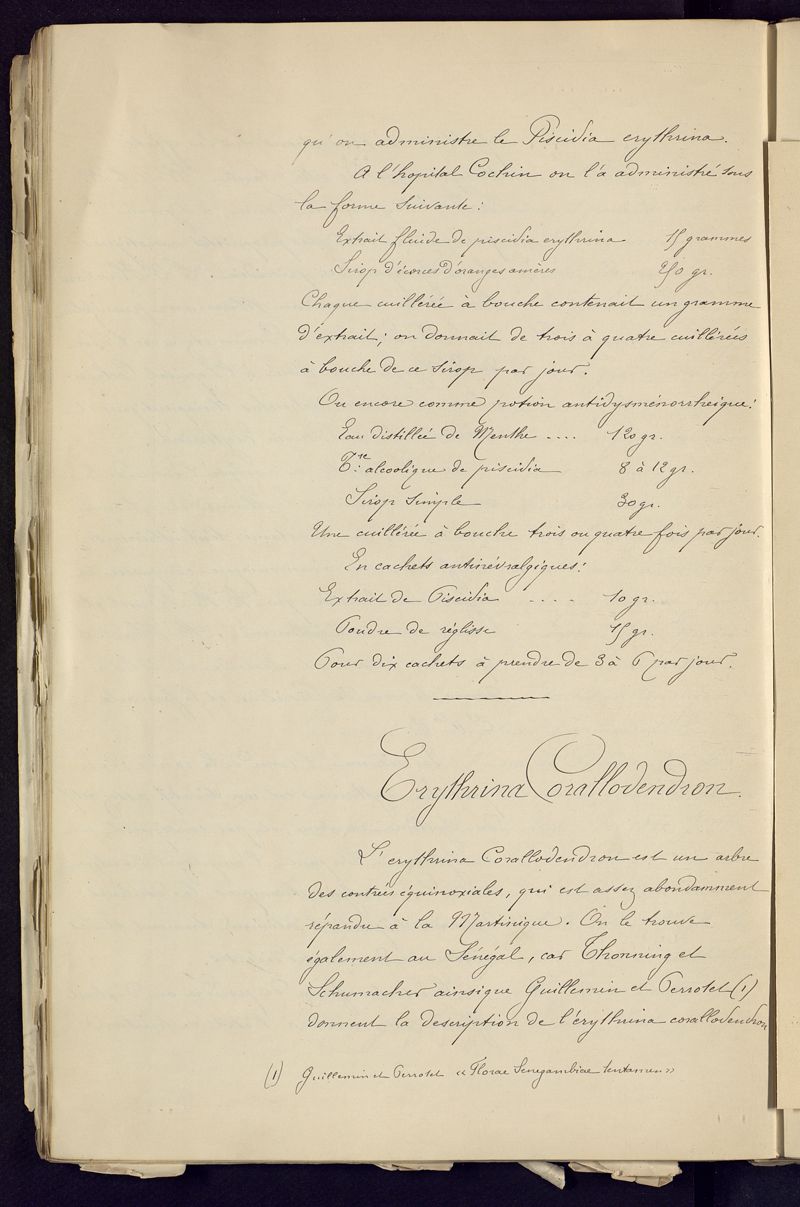 qu'on administre le Piscidia erythrina.
A l'hopital Cochin on l'a administré sous
la forme suivante :
Extrait fluide de piscidia erythrina 15 grammes
Sirop d'écorces d'oranges amères 250 gr.
Chaque cuillérée à bouche contenait un gramme
d'extrait ; on donnait de trois à quatre cuillérées
à bouche de ce sirop par jour.
Ou encore comme potion antidysménorrheique :
Eau distillée de Menthe .... 120 gr.
Tre alcoolique de piscidia 8 à 12 gr.
Sirop simple 30 gr.
Une cuillérée à bouche trois ou quatre fois par jour.
En cachets antinévralgiques :
Extrait de Piscidia .... 10 gr.
Poudre de réglisse 15 gr.
Pour dix cachets à prendre de 3 à 6 par jour.
Erythrina Corallodendron.
L'erythrina Corallodendron est un arbre
des contrées équinoxiales, qui est assez abondamment
répandu à la Martinique. On le trouve
également au Sénégal, car Thonning et
Schumacher ainsi que Guillemin et Perrotet (1)
donnent la description de l'érythrina corallodendron
(1) Guillemin et Perrotet « Florae Senegambiae tentamen »